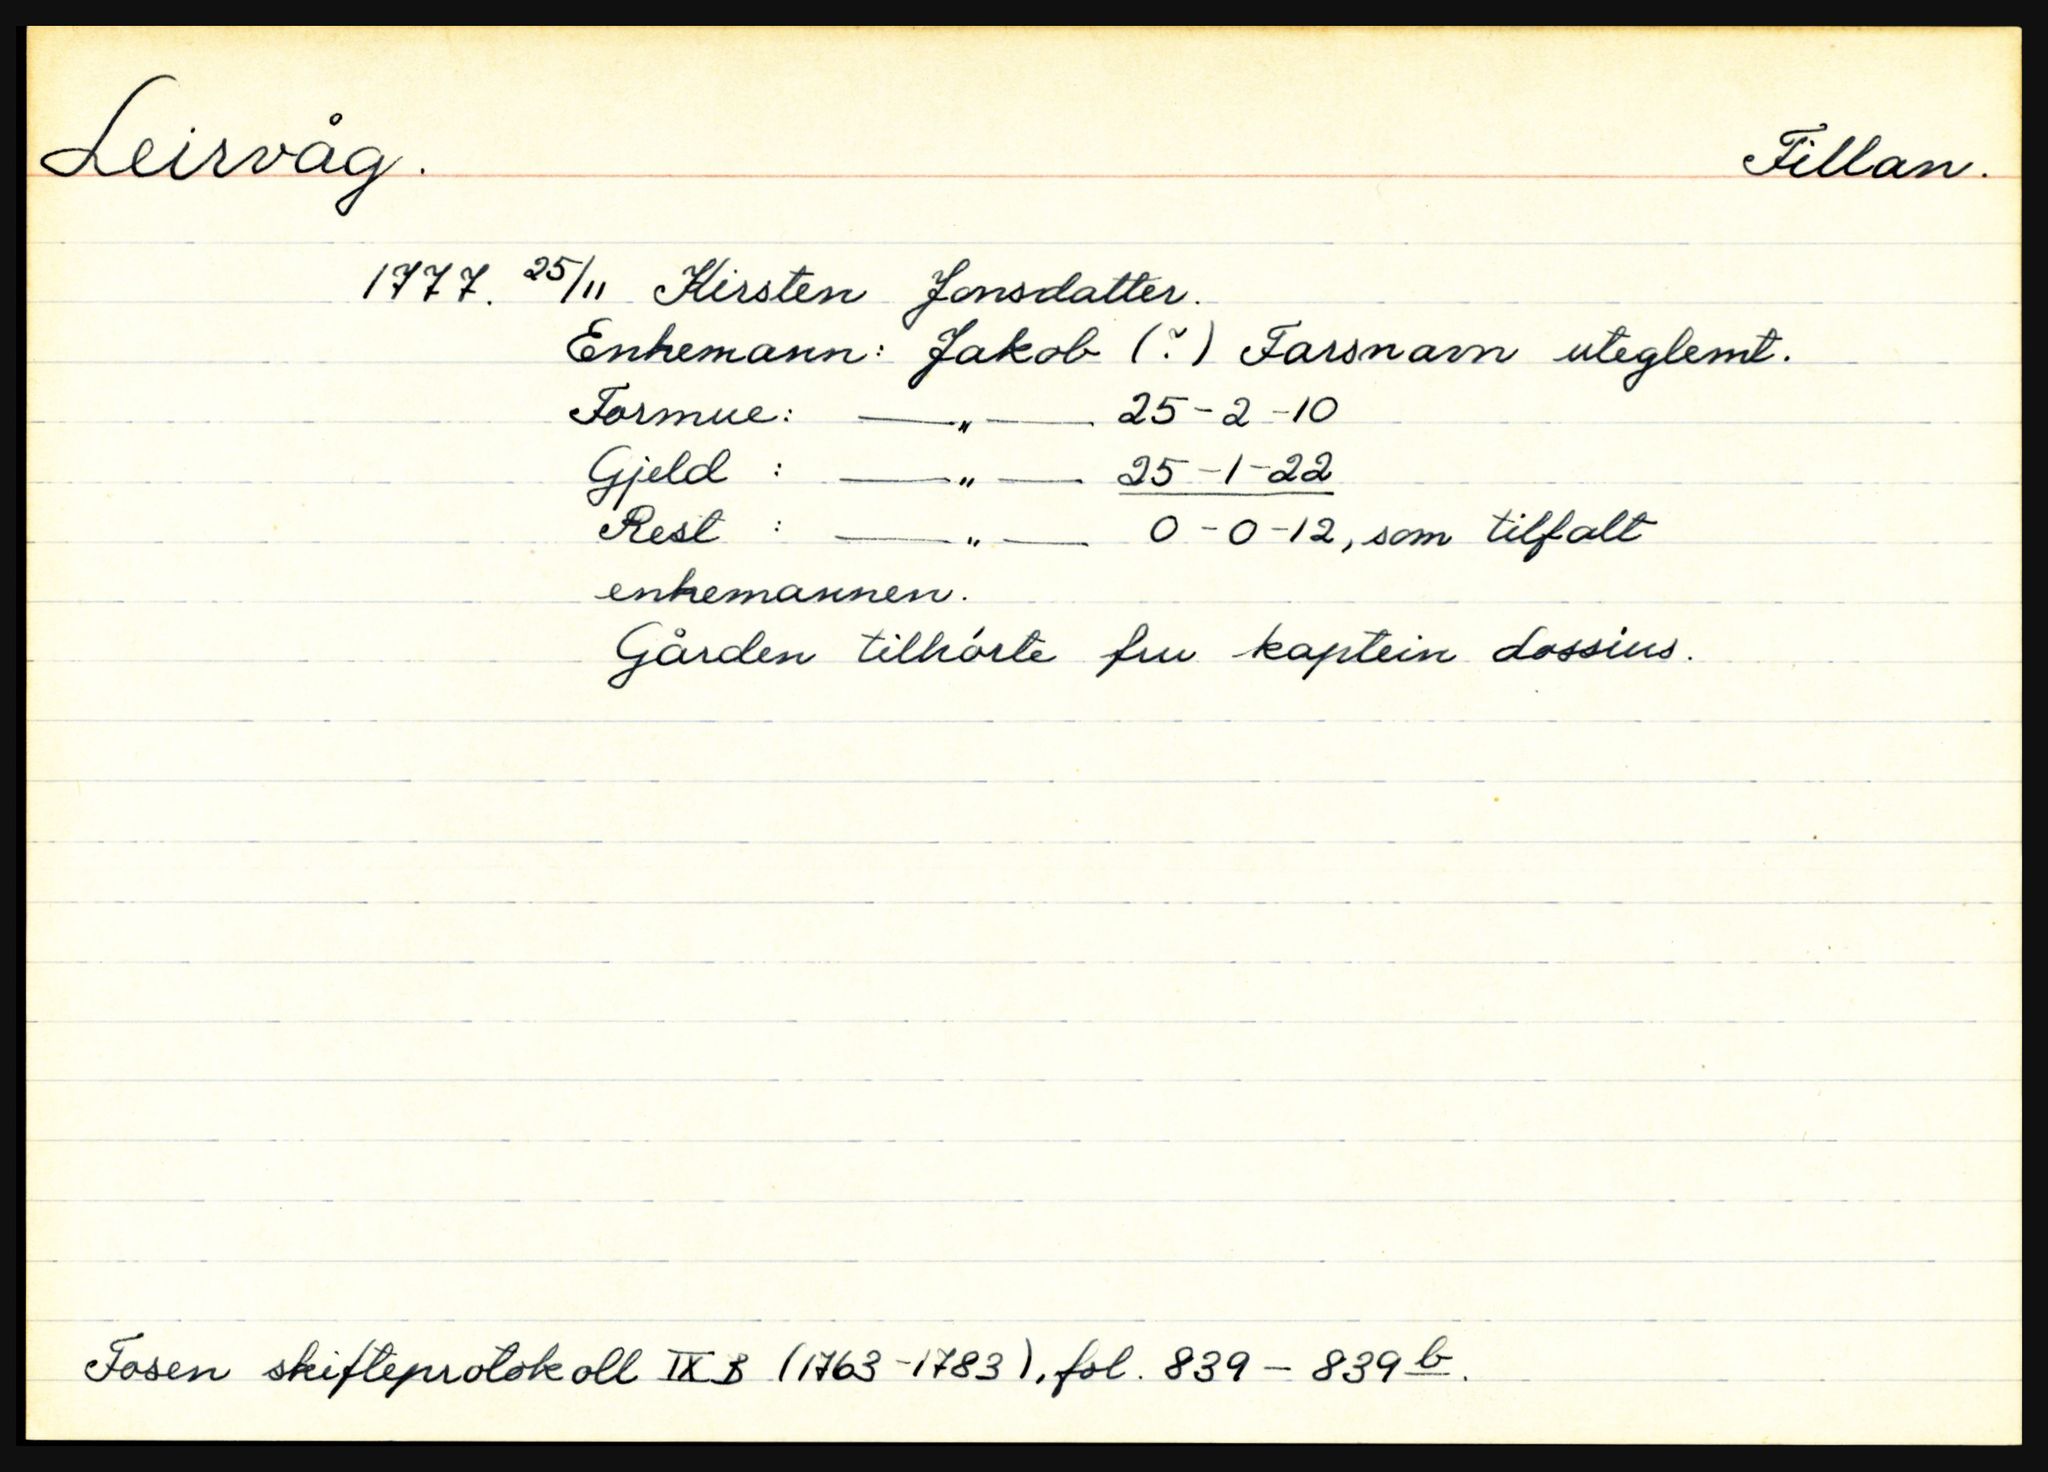 Leirvåg. Fillan.
1777. 25/11 Kirsten Jonsdatter.
Enkemann: Jakob (?) Farsnavn uteglemt.
Formue: —„— 25-2-10
Gjeld : —„— 25-1-22
Rest : —„— 0-0-12, som tilfalt
enkemannen.
Gården tilhørte fru kaptein Lossius.
Fosen skifteprotokoll IX B (1763-1783), fol. 839 - 839 b.